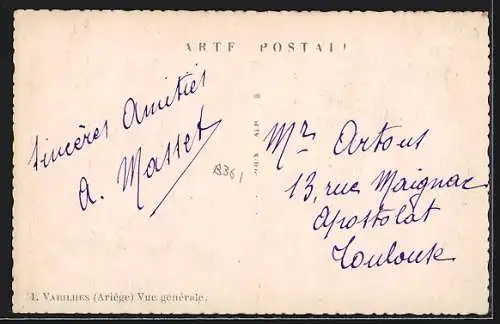 ARTE POSTAL
Sincères Amitiés
A. Masset
B361
Mr Artous
13, rue Maignac
Apostolat
Toulouse
VARILHES (Ariège) Vue générale.